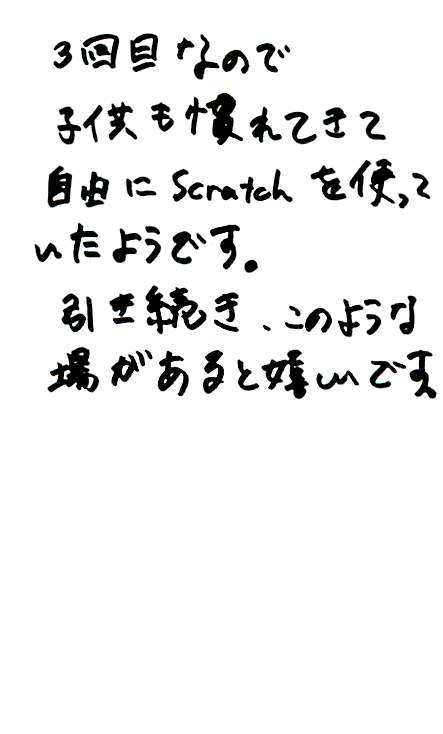 3回目なので
子供も慣れてきて
自由にScratchを使って
いたようです。
引き続き、このような
場があると嬉しいです